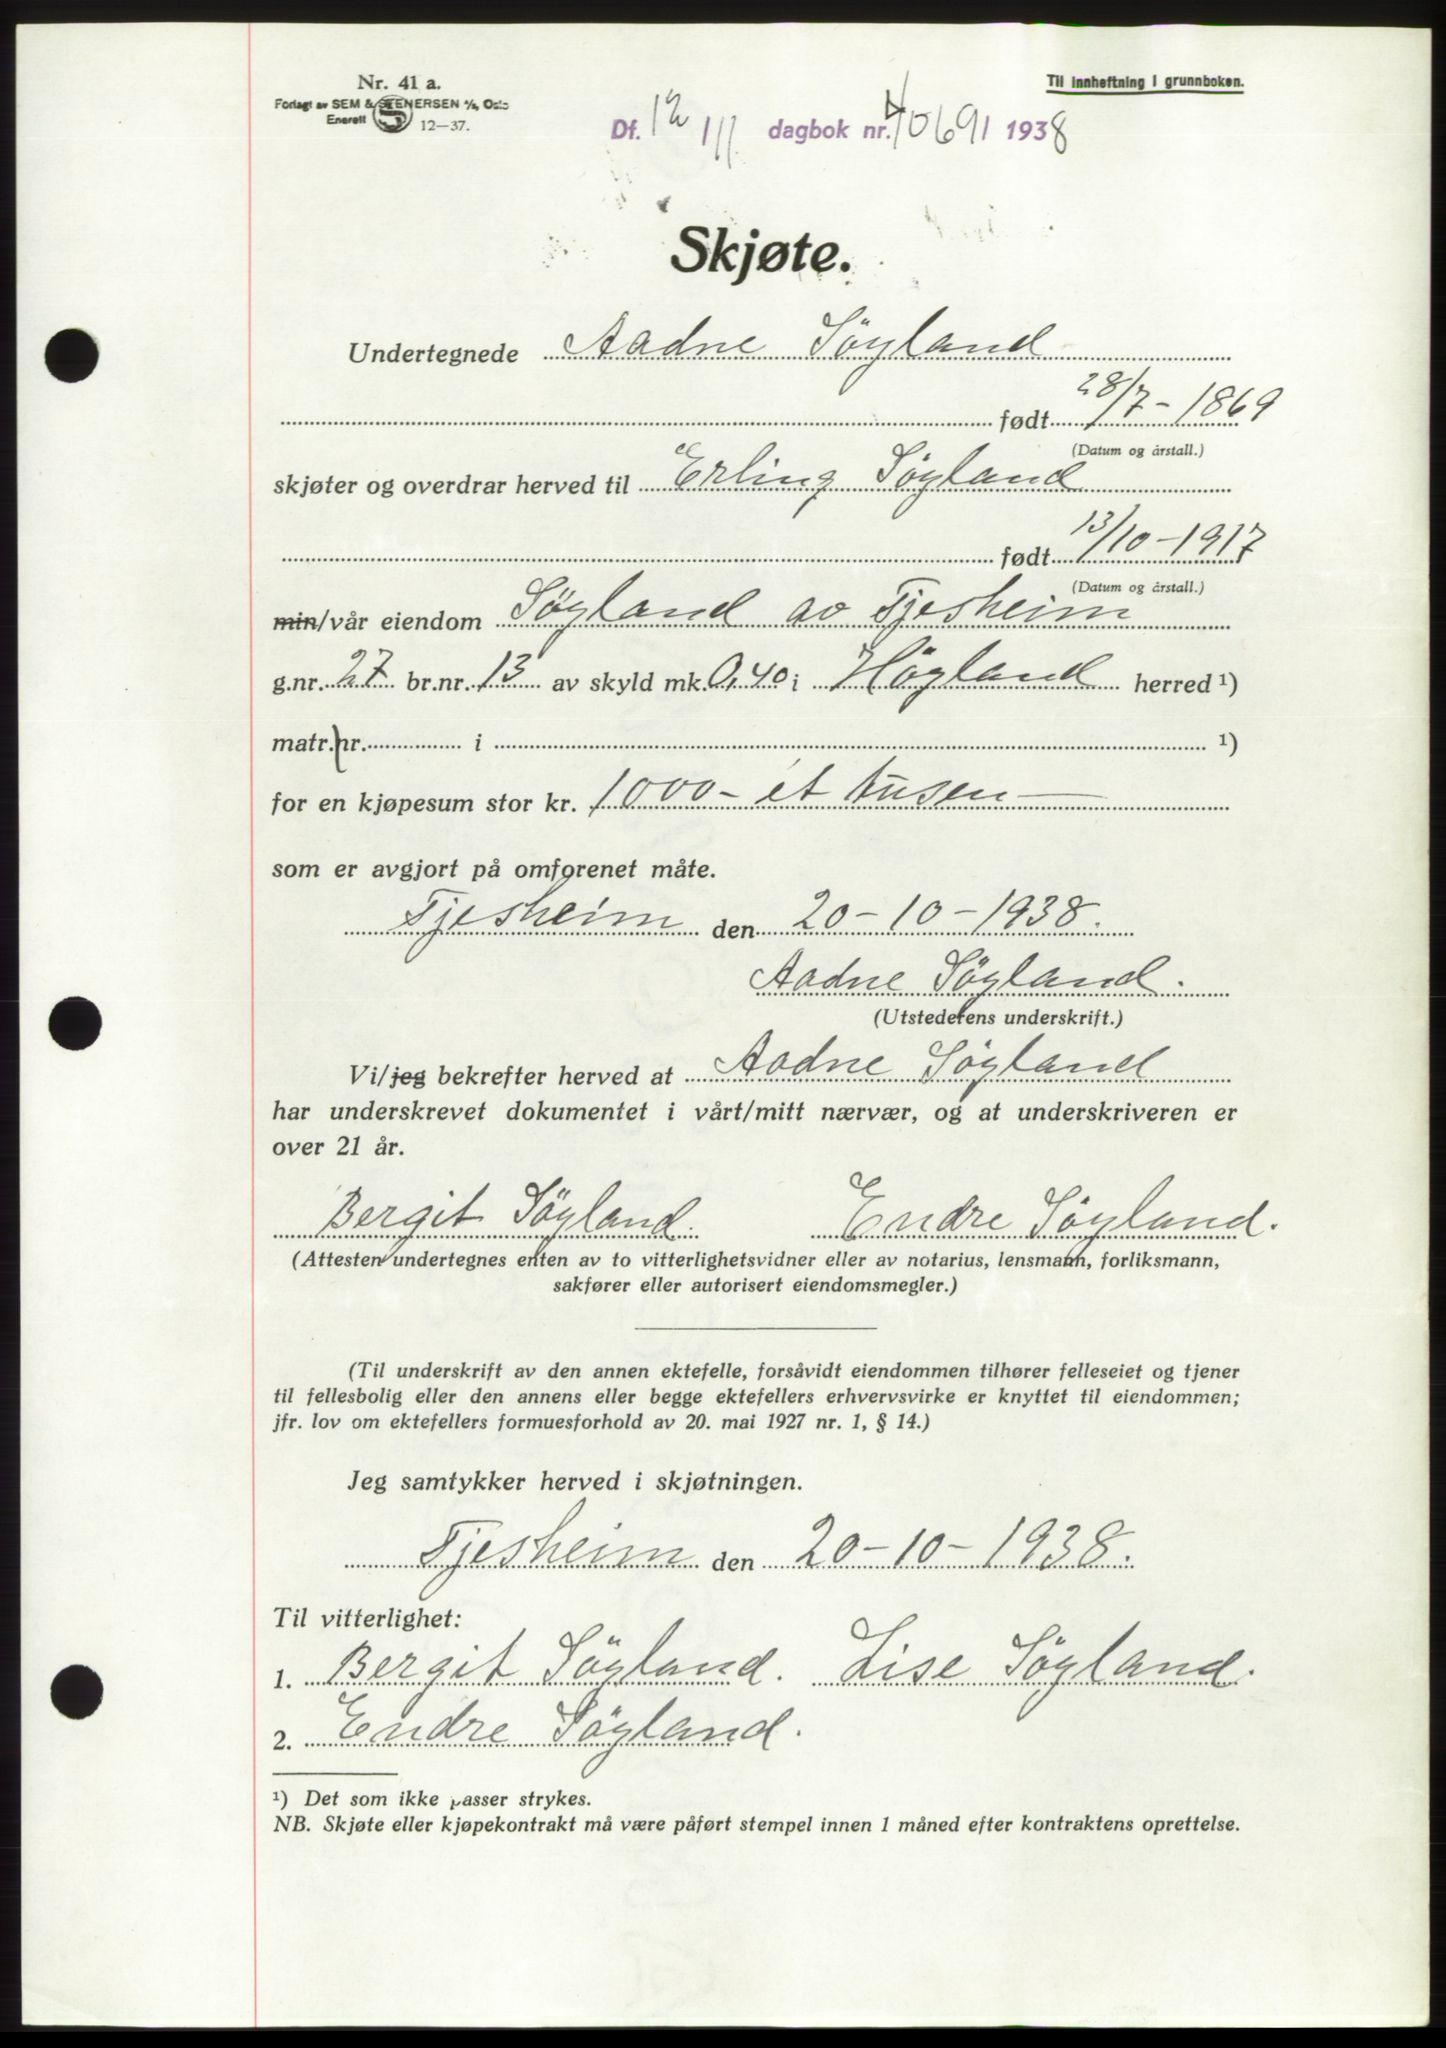 Nr. 41 a.
Forlagt av SEM & STENERSEN A/S, Oslo
Enerett
12—37.
Til innheftning i grunnboken.
Df. 12/11 dagbok nr. 4069/1938
Skjøte.
Undertegnede Aadne Söyland
født 28/7 - 1869
(Datum og årstall.)
skjøter og overdrar herved til Erling Söyland
født 13/10 - 1917
(Datum og årstall.)
min/vår eiendom Söyland av Tjesheim
g.nr. 27 br.nr. 13 av skyld mk. 0,40 i Högland herred ¹)
matr.nr. i ¹)
for en kjøpesum stor kr. 1000 - et tusen —
som er avgjort på omforenet måte.
Tjesheim den 20 - 10 - 1938.
Aadne Söyland.
(Utstederens underskrift.)
Vi/jeg bekrefter herved at Aadne Söyland
har underskrevet dokumentet i vårt/mitt nærvær, og at underskriveren er
over 21 år.
Bergit Söyland. Endre Söyland.
(Attesten undertegnes enten av to vitterlighetsvidner eller av notarius, lensmann, forliksmann,
sakfører eller autorisert eiendomsmegler.)
(Til underskrift av den annen ektefelle, forsåvidt eiendommen tilhører felleseiet og tjener
til fellesbolig eller den annens eller begge ektefellers erhvervsvirke er knyttet til eiendommen;
jfr. lov om ektefellers formuesforhold av 20. mai 1927 nr. 1, § 14.)
Jeg samtykker herved i skjøtningen.
Tjesheim den 20 - 10 - 1938.
Til vitterlighet:
1. Bergit Söyland. Lise Söyland.
2. Endre Söyland.
¹) Det som ikke passer strykes.
NB. Skjøte eller kjøpekontrakt må være påført stempel innen 1 måned efter kontraktens oprettelse.